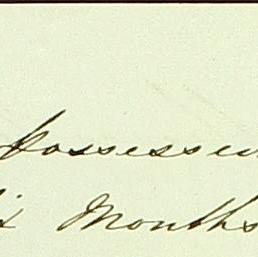 possessed
Six Months